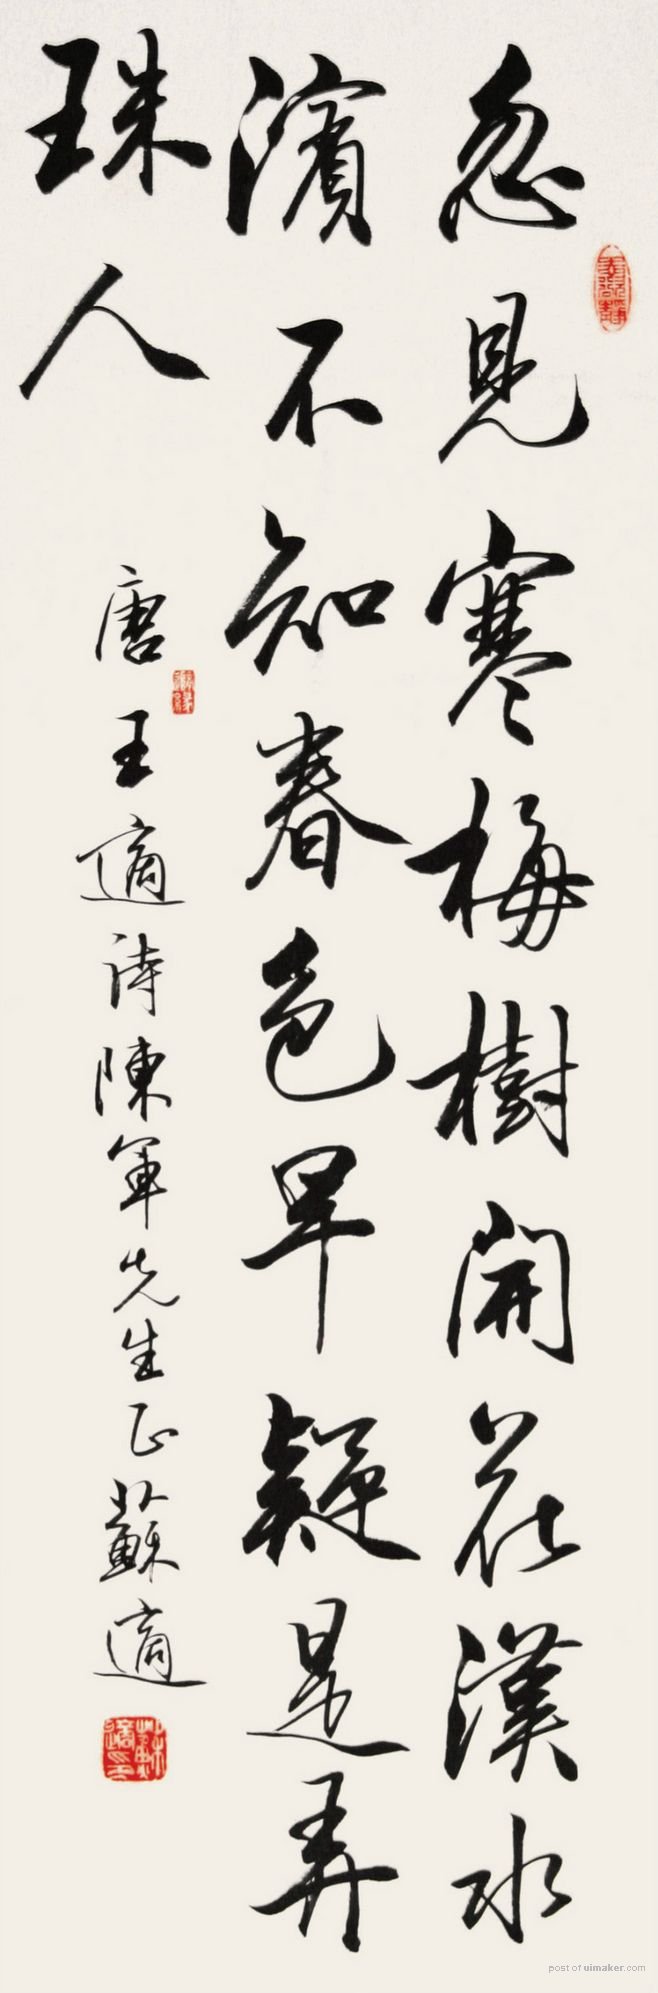 忽見寒梅樹開花漢水
濱不知春色早疑是弄
珠人
唐王適詩陳軍先生正蘇適
post of uimaker.com